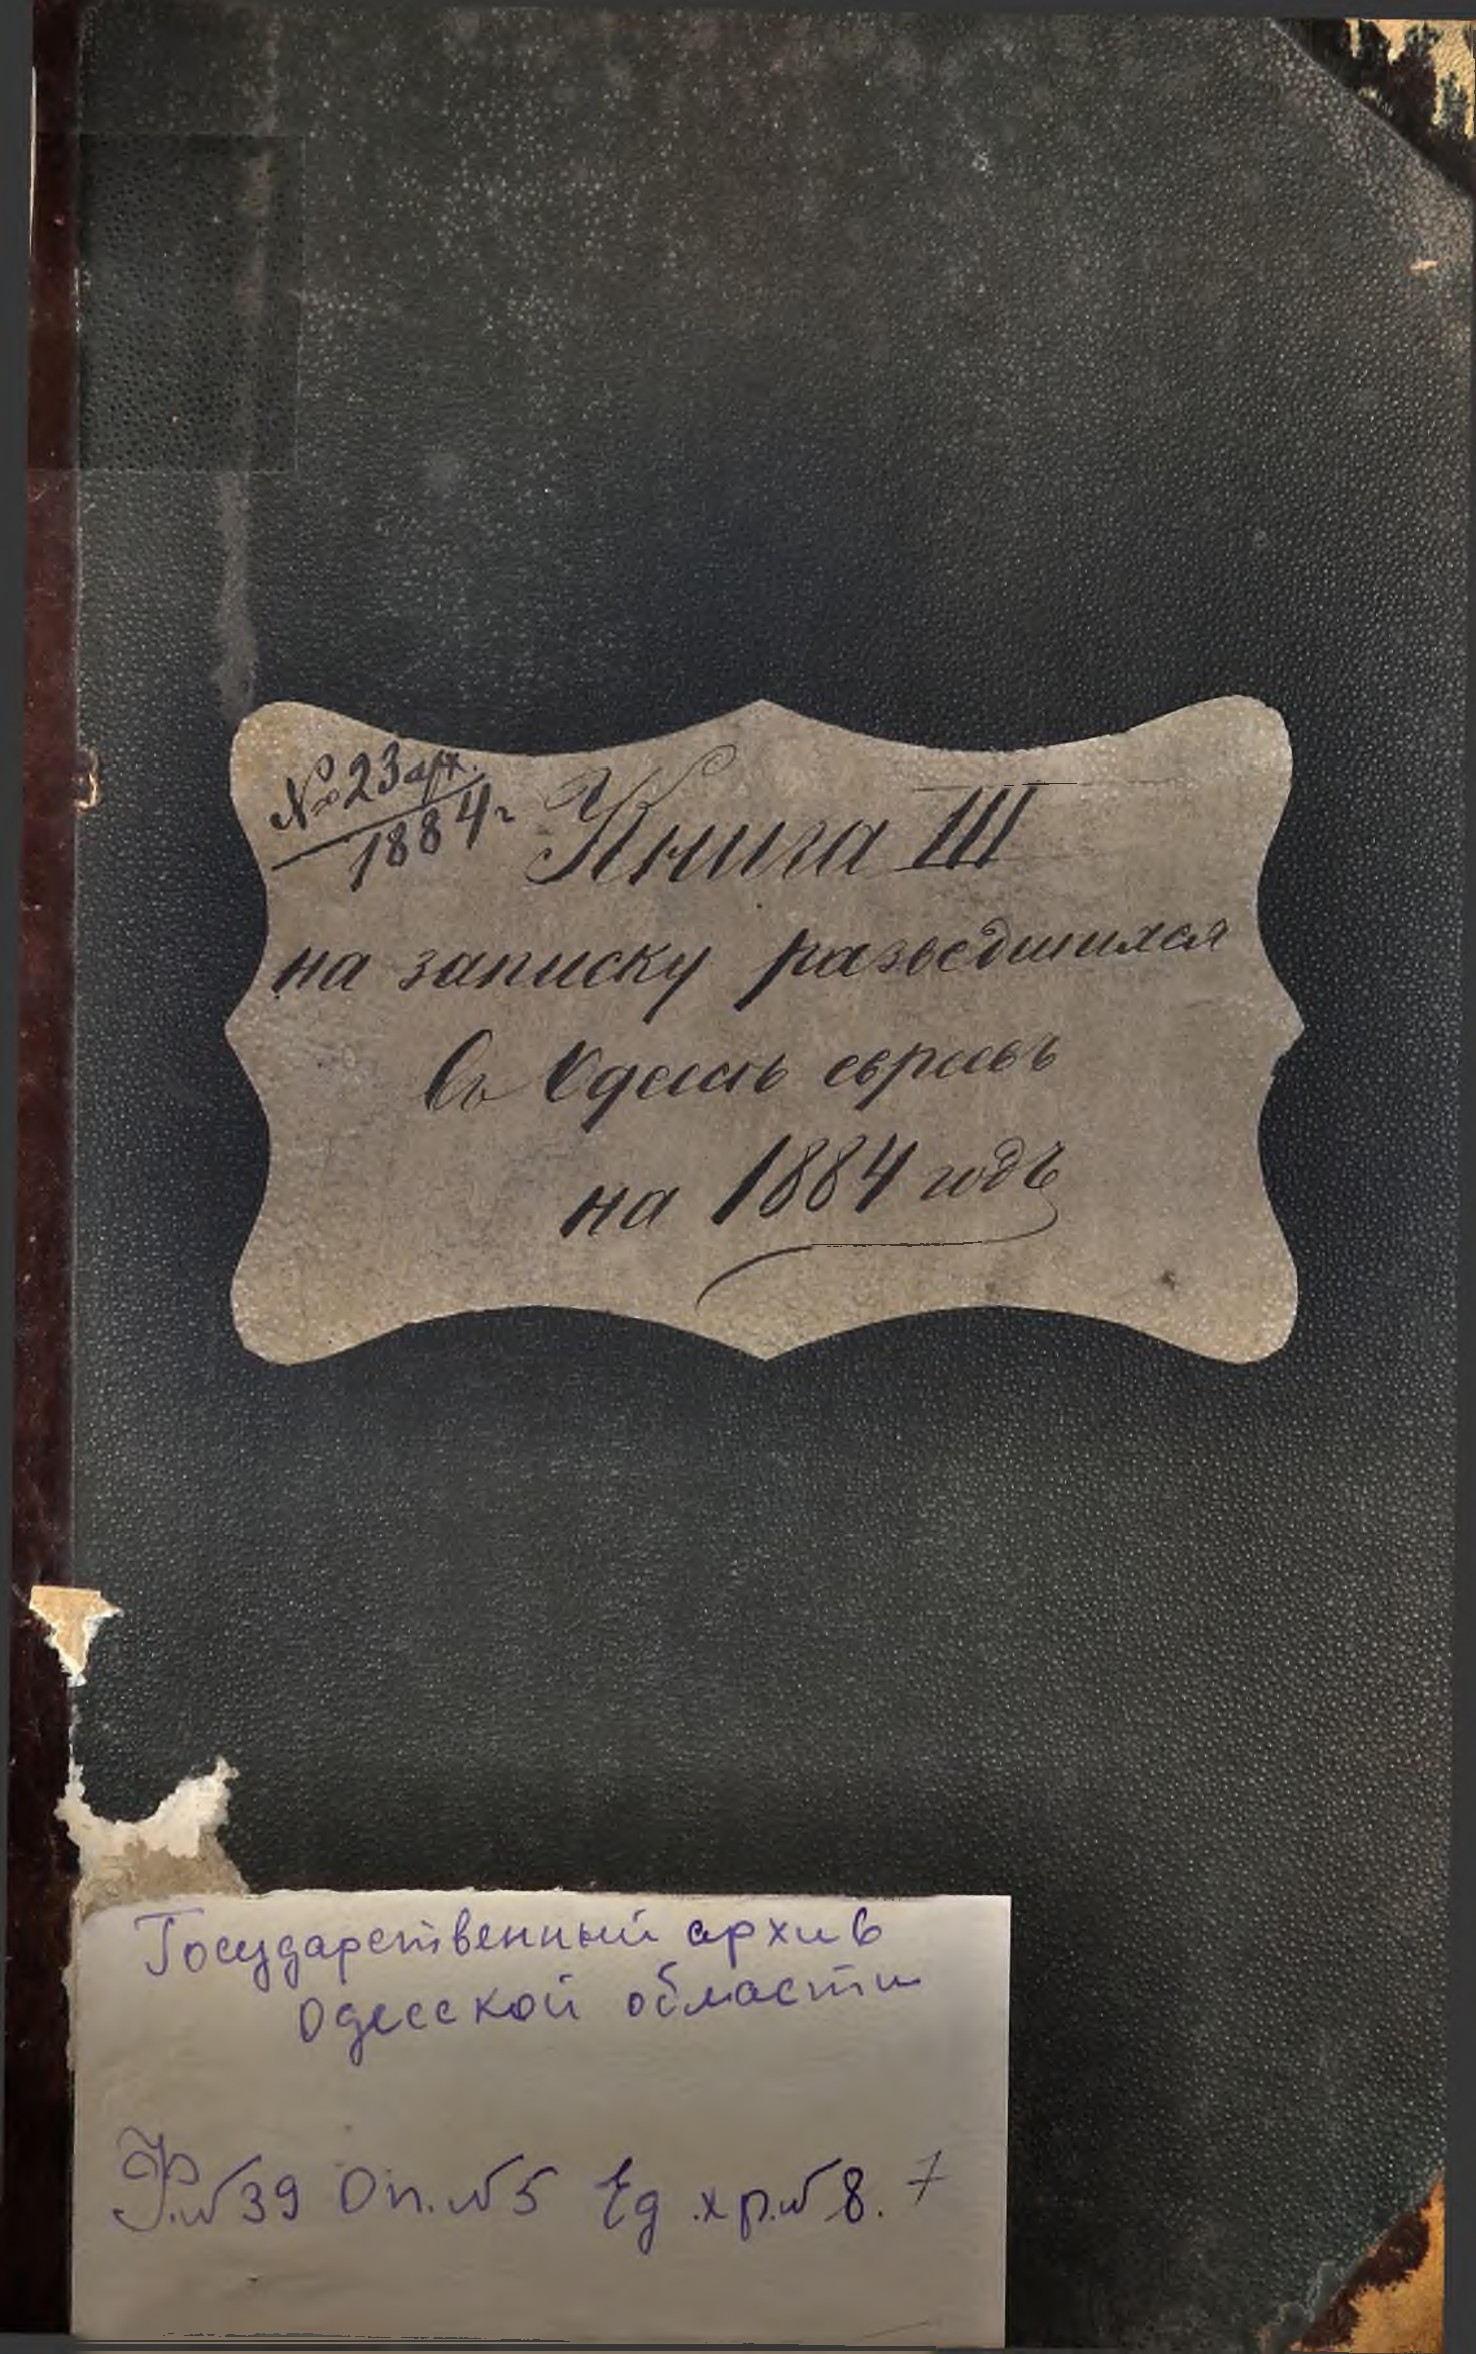 № 23 арх.
1884 г
Книга III
на записку разведшихся
Въ Одессѣ евреевъ
на 1884 годъ
Государственный архив
Одесской области
Ф. № 39 Оп. № 5 Ед. хр. № 8. 7